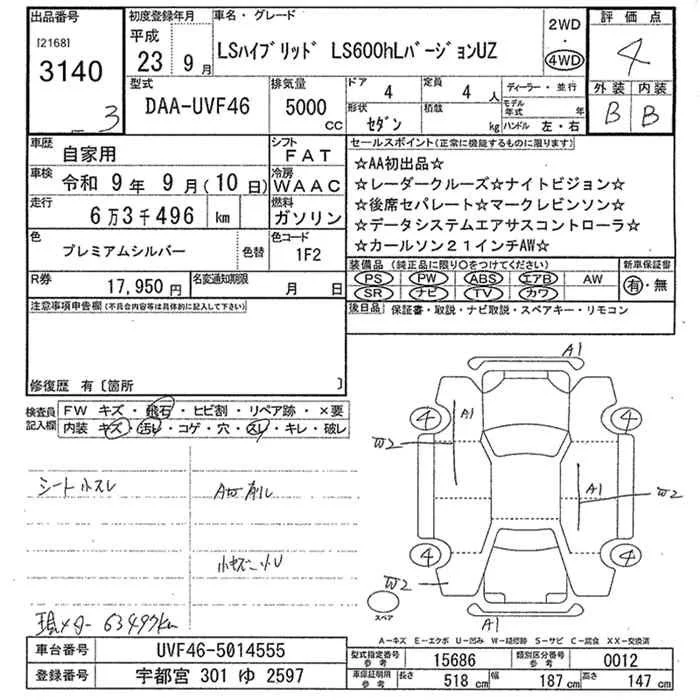 出品番号
[2168]
3140
3
初度登録年月
平成
23 9月
車名・グレード
LSハイブリッド LS600hLバージョンUZ
2WD
・
4WD
評価点
4
外装 内装
B B
型式
DAA-UVF46
排気量
5000
CC
ドア
4
定員
4 人
形状
セダン
積載
kg
ディーラー・並行
モデル年式 年
ハンドル 左・右
車歴
自家用
シフト
FAT
車検
令和 9年 9月(10日)
冷房
WAAC
走行
6万3千496 km
燃料
ガソリン
色
プレミアムシルバー
色替
色コード
1F2
R券
17,950円
名変通知期限
月 日
セールスポイント(正常に機能するものに限ります)
☆AA初出品☆
☆レーダークルーズ☆ナイトビジョン☆
☆後席セパレート☆マークレビンソン☆
☆データシステムエアサスコントローラ☆
☆カールソン21インチAW☆
装備品(純正品に限り○をつけてください)
PS PW ABS エアB AW
SR ナビ TV カワ
新車保証書
有・無
後日品 保証書・取説・ナビ取説・スペアキー・リモコン
注意事項申告欄(不具合内容等は具体的に記入して下さい)
修復歴 有〔箇所 〕
検査員記入欄
FW キズ・飛石・ヒビ割・リペア跡・×要
内装 キズ・汚れ・コゲ・穴・スレ・キレ・破レ
シート小スレ
AW削ル
小キズ・小U
現メーター 63497km
A1
4
A1
4
W2
A1
W2
4
4
W2
A1
スペア
A-キズ E-エクボ U-凹み W-補修跡 S-サビ C-腐食 XX-交換済
車台番号
UVF46-5014555
登録番号
宇都宮 301 ゆ 2597
型式指定番号
参考
15686
類別区分番号
参考
0012
車庫証明用
参考
長さ 518 cm
幅 187 cm
高さ 147 cm